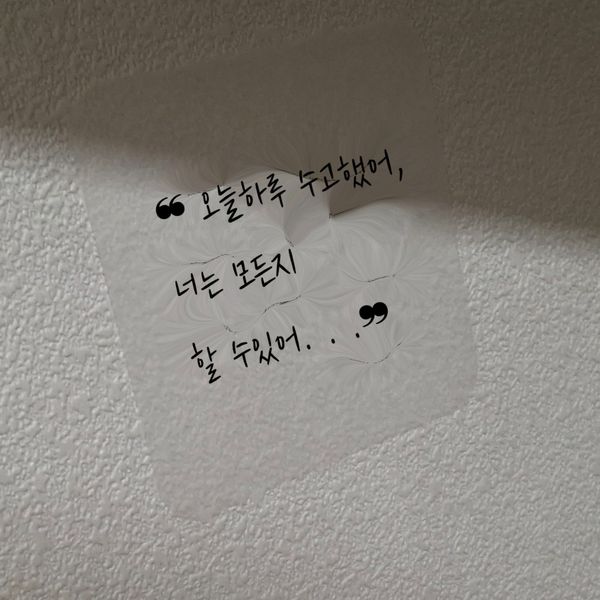 ❝ 오늘하루 수고했어,
너는 모든지
할 수있어. . .❞